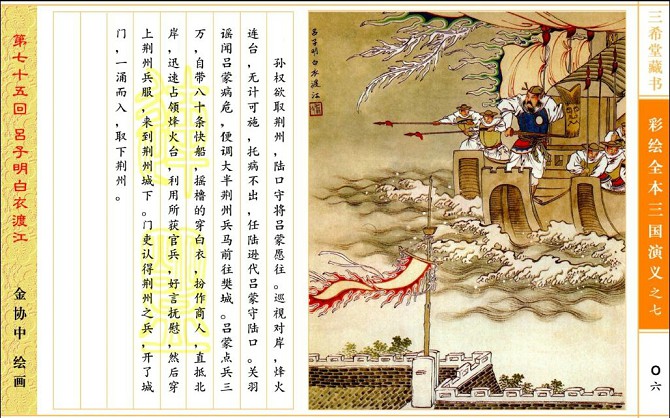 三希堂藏书
彩绘全本三国演义之七
〇六
吕子明白衣渡江
孙权欲取荆州，陆口守将吕蒙愿往。巡视对岸，烽火
连台，无计可施，托病不出，任陆逊代吕蒙守陆口。关羽
谣闻吕蒙病危，便调大半荆州兵马前往樊城。吕蒙点兵三
万，自带八十条快船，摇橹的穿白衣，扮作商人，直抵北
岸，迅速占领烽火台，利用所获官兵，好言抚慰，然后穿
上荆州兵服，来到荆州城下。门吏认得荆州之兵，开了城
门，一涌而入，取下荆州。
第七十五回 吕子明白衣渡江
金协中 绘画